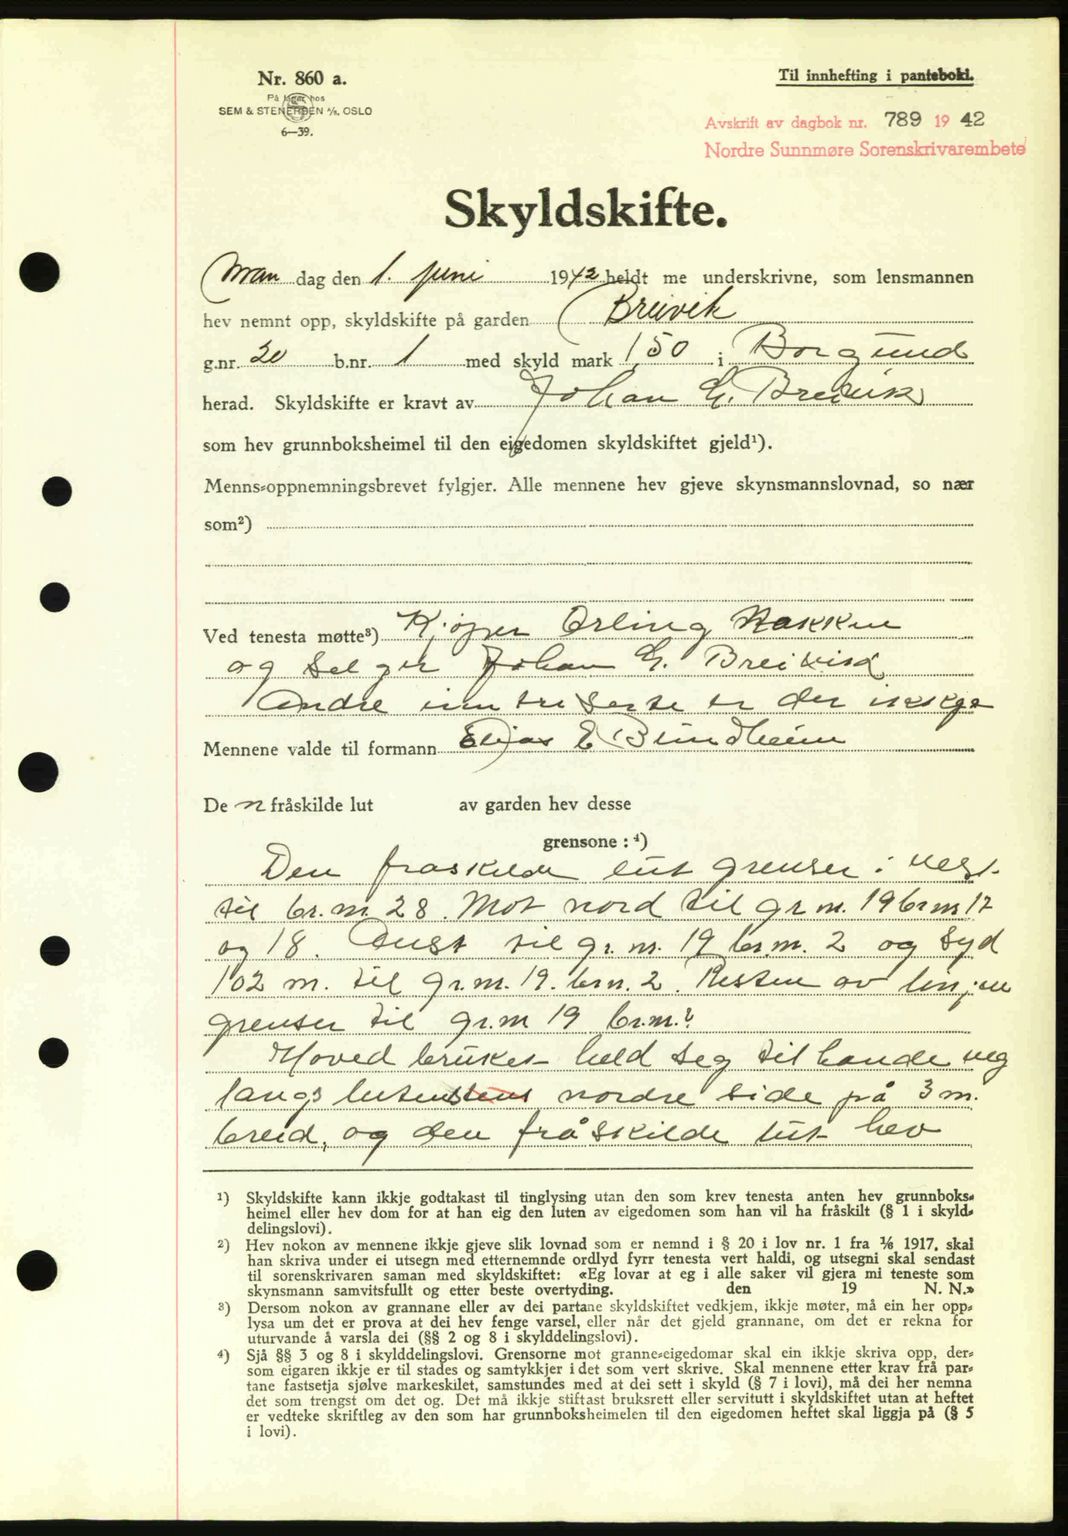 Nr. 860 a.
På lager hos
SEM & STENERSEN A/S, OSLO
6—39.
Til innhefting i pantebok.
Avskrift av dagbok nr. 789 19 42
Nordre Sunnmøre Sorenskrivarembete
Skyldskifte.
Man dag den 1. juni 1942 heldt me underskrivne, som lensmannen
hev nemnt opp, skyldskifte på garden Breivik
g.nr. 20 b.nr. 1 med skyld mark 1,50 i Borgund
herad. Skyldskifte er kravt av Johan E. Breivik
som hev grunnboksheimel til den eigedomen skyldskiftet gjeld¹).
Menns-oppnemningsbrevet fylgjer. Alle mennene hev gjeve skynsmannslovnad, so nær
som²)
Ved tenesta møtte³) Kjøper Erling Nakken
og Selger Johan E. Breivik
Andre inntreserte er der ikkje
Mennene valde til formann Elias E Blindheim
De n fråskilde lut av garden hev desse
grensone : ⁴)
Den fraskilde lut grenser i vest
til br.nr. 28. Mot nord til gr nr. 19 br nr 17
og 18. Aust til gr. nr. 19 br.nr. 2 og syd
102 m. til gr.nr. 19. br.n. 2. Resten av linjen
grenser til gr.nr 19 br.nr.
Hoved bruket held seg til hande veg
langs lutens nordre side på 3 m.
breid, og den fråskilde lut hev
¹) Skyldskifte kann ikkje godtakast til tinglysing utan den som krev tenesta anten hev grunnboks-
heimel eller hev dom for at han eig den luten av eigedomen som han vil ha fråskilt (§ 1 i skyld-
delingslovi).
²) Hev nokon av mennene ikkje gjeve slik lovnad som er nemnd i § 20 i lov nr. 1 fra 1/6 1917, skal
han skriva under ei utsegn med etternemnde ordlyd fyrr tenesta vert haldi, og utsegni skal sendast
til sorenskrivaren saman med skyldskiftet: «Eg lovar at eg i alle saker vil gjera mi teneste som
skynsmann samvitsfullt og etter beste overtyding. den 19 N. N.»
³) Dersom nokon av grannane eller av dei partane skyldskiftet vedkjem, ikkje møter, må ein her opp-
lysa um det er prova at dei hev fenge varsel, eller når det gjeld grannane, om det er rekna for
uturvande å varsla dei (§§ 2 og 8 i skylddelingslovi).
⁴) Sjå §§ 3 og 8 i skylddelingslovi. Grensorne mot granne-eigedomar skal ein ikkje skriva opp, der-
som eigaren ikkje er til stades og samtykkjer i det som vert skrive. Skal mennene etter krav frå par-
tane fastsetja sjølve markeskilet, samstundes med at dei sett i skyld (§ 7 i lovi), må dei her nemna
det som trengst om det og. Det må ikkje stiftast bruksrett eller servitutt i skyldskiftet utan at heftet
er vedteke skriftleg av den som har grunnboksheimelen til den eigedomen heftet skal liggja på (§ 5
i lovi).